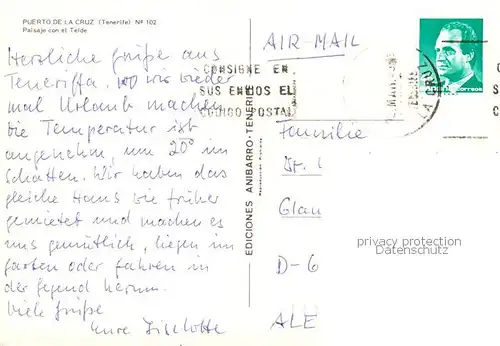 PUERTO DE LA CRUZ (Tenerife) Nº 102
Paisaje con el Teide
Herzliche Grüße aus
Teneriffa, wo wir wieder
mal Urlaub machen.
Die Temperatur ist
angenehm, um 20° im
Schatten. Wir haben das
gleiche Haus wie früher
gemietet und machen es
uns gemütlich, liegen im
Garten oder fahren in
der Gegend herum.
Viele Grüße
Eure Liselotte
EDICIONES ANIBARRO-TENERIFE
AIR MAIL
CONSIGNE EN
SUS ENVIOS EL
CODIGO POSTAL
LA CRUZ
correos
Familie
Dr. L
Glau
D-6
ALE
privacy protection
Datenschutz